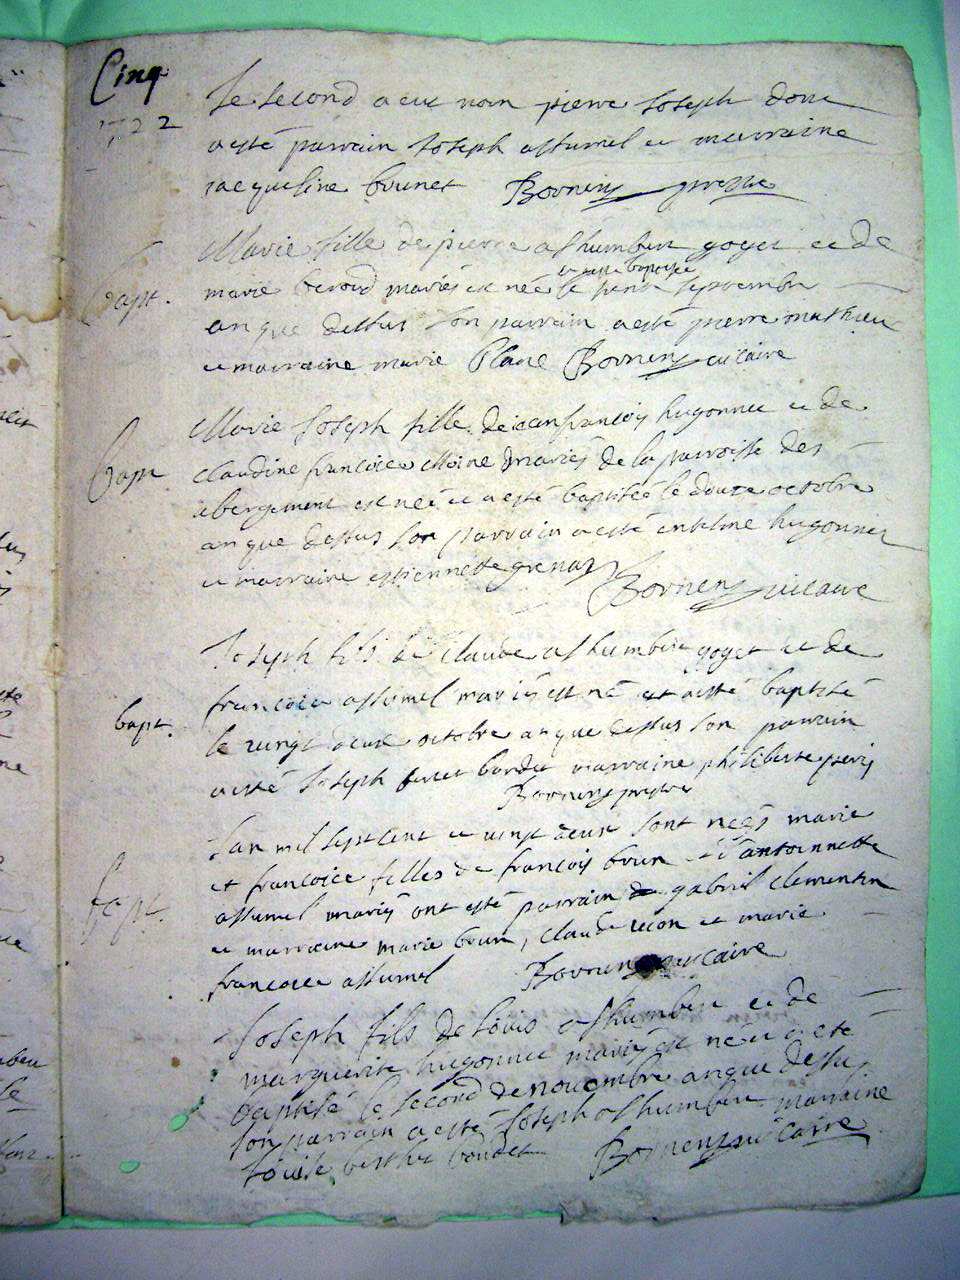 Cinq
1722
Le second a eut nom pierre Joseph dont
a esté parrain Joseph assumel et marraine
jacqueline brunet Bornens prestre
Bapt.
Marie fille de pierre ashumbert goyet et de
marie beroud mariés est née et a esté baptisée le septembre
an que dessus son parrain a esté pierre mathieu
et marraine marie Plane Bornens vicaire
Bapt
Marie Joseph fille de jean françois hugonnet et de
Claudine françoise Moine mariés de la parroisse des
abergement est neé et a esté baptiseé le douze octobre
an que dessus son parrain a esté hugonnet
et marraine estiennette grenat Bornens vicaire
bapt.
Joseph fils de claude ashumbert goyet et de
francoise assumel mariés est né et a esté baptisé
le vingt deux octobre an que dessus son parrain
a esté Joseph marraine philiberte
Bornens prestre
Bapt.
L'an mil sept cent et vingt deux sont neés marie
et francoise filles de françois brun et d'antoinnette
assumel mariés ont esté parrain gabriel clementin
et marraine marie brun, claude et marie
francoise assumel Bornens vicaire
Joseph fils de Louis ashumbert et de
marguerite hugonnet mariés est né et a eté
baptisé le second de novembre an que dessus
son parrain a esté Joseph ashumbert marraine
Louise Bornens vicaire